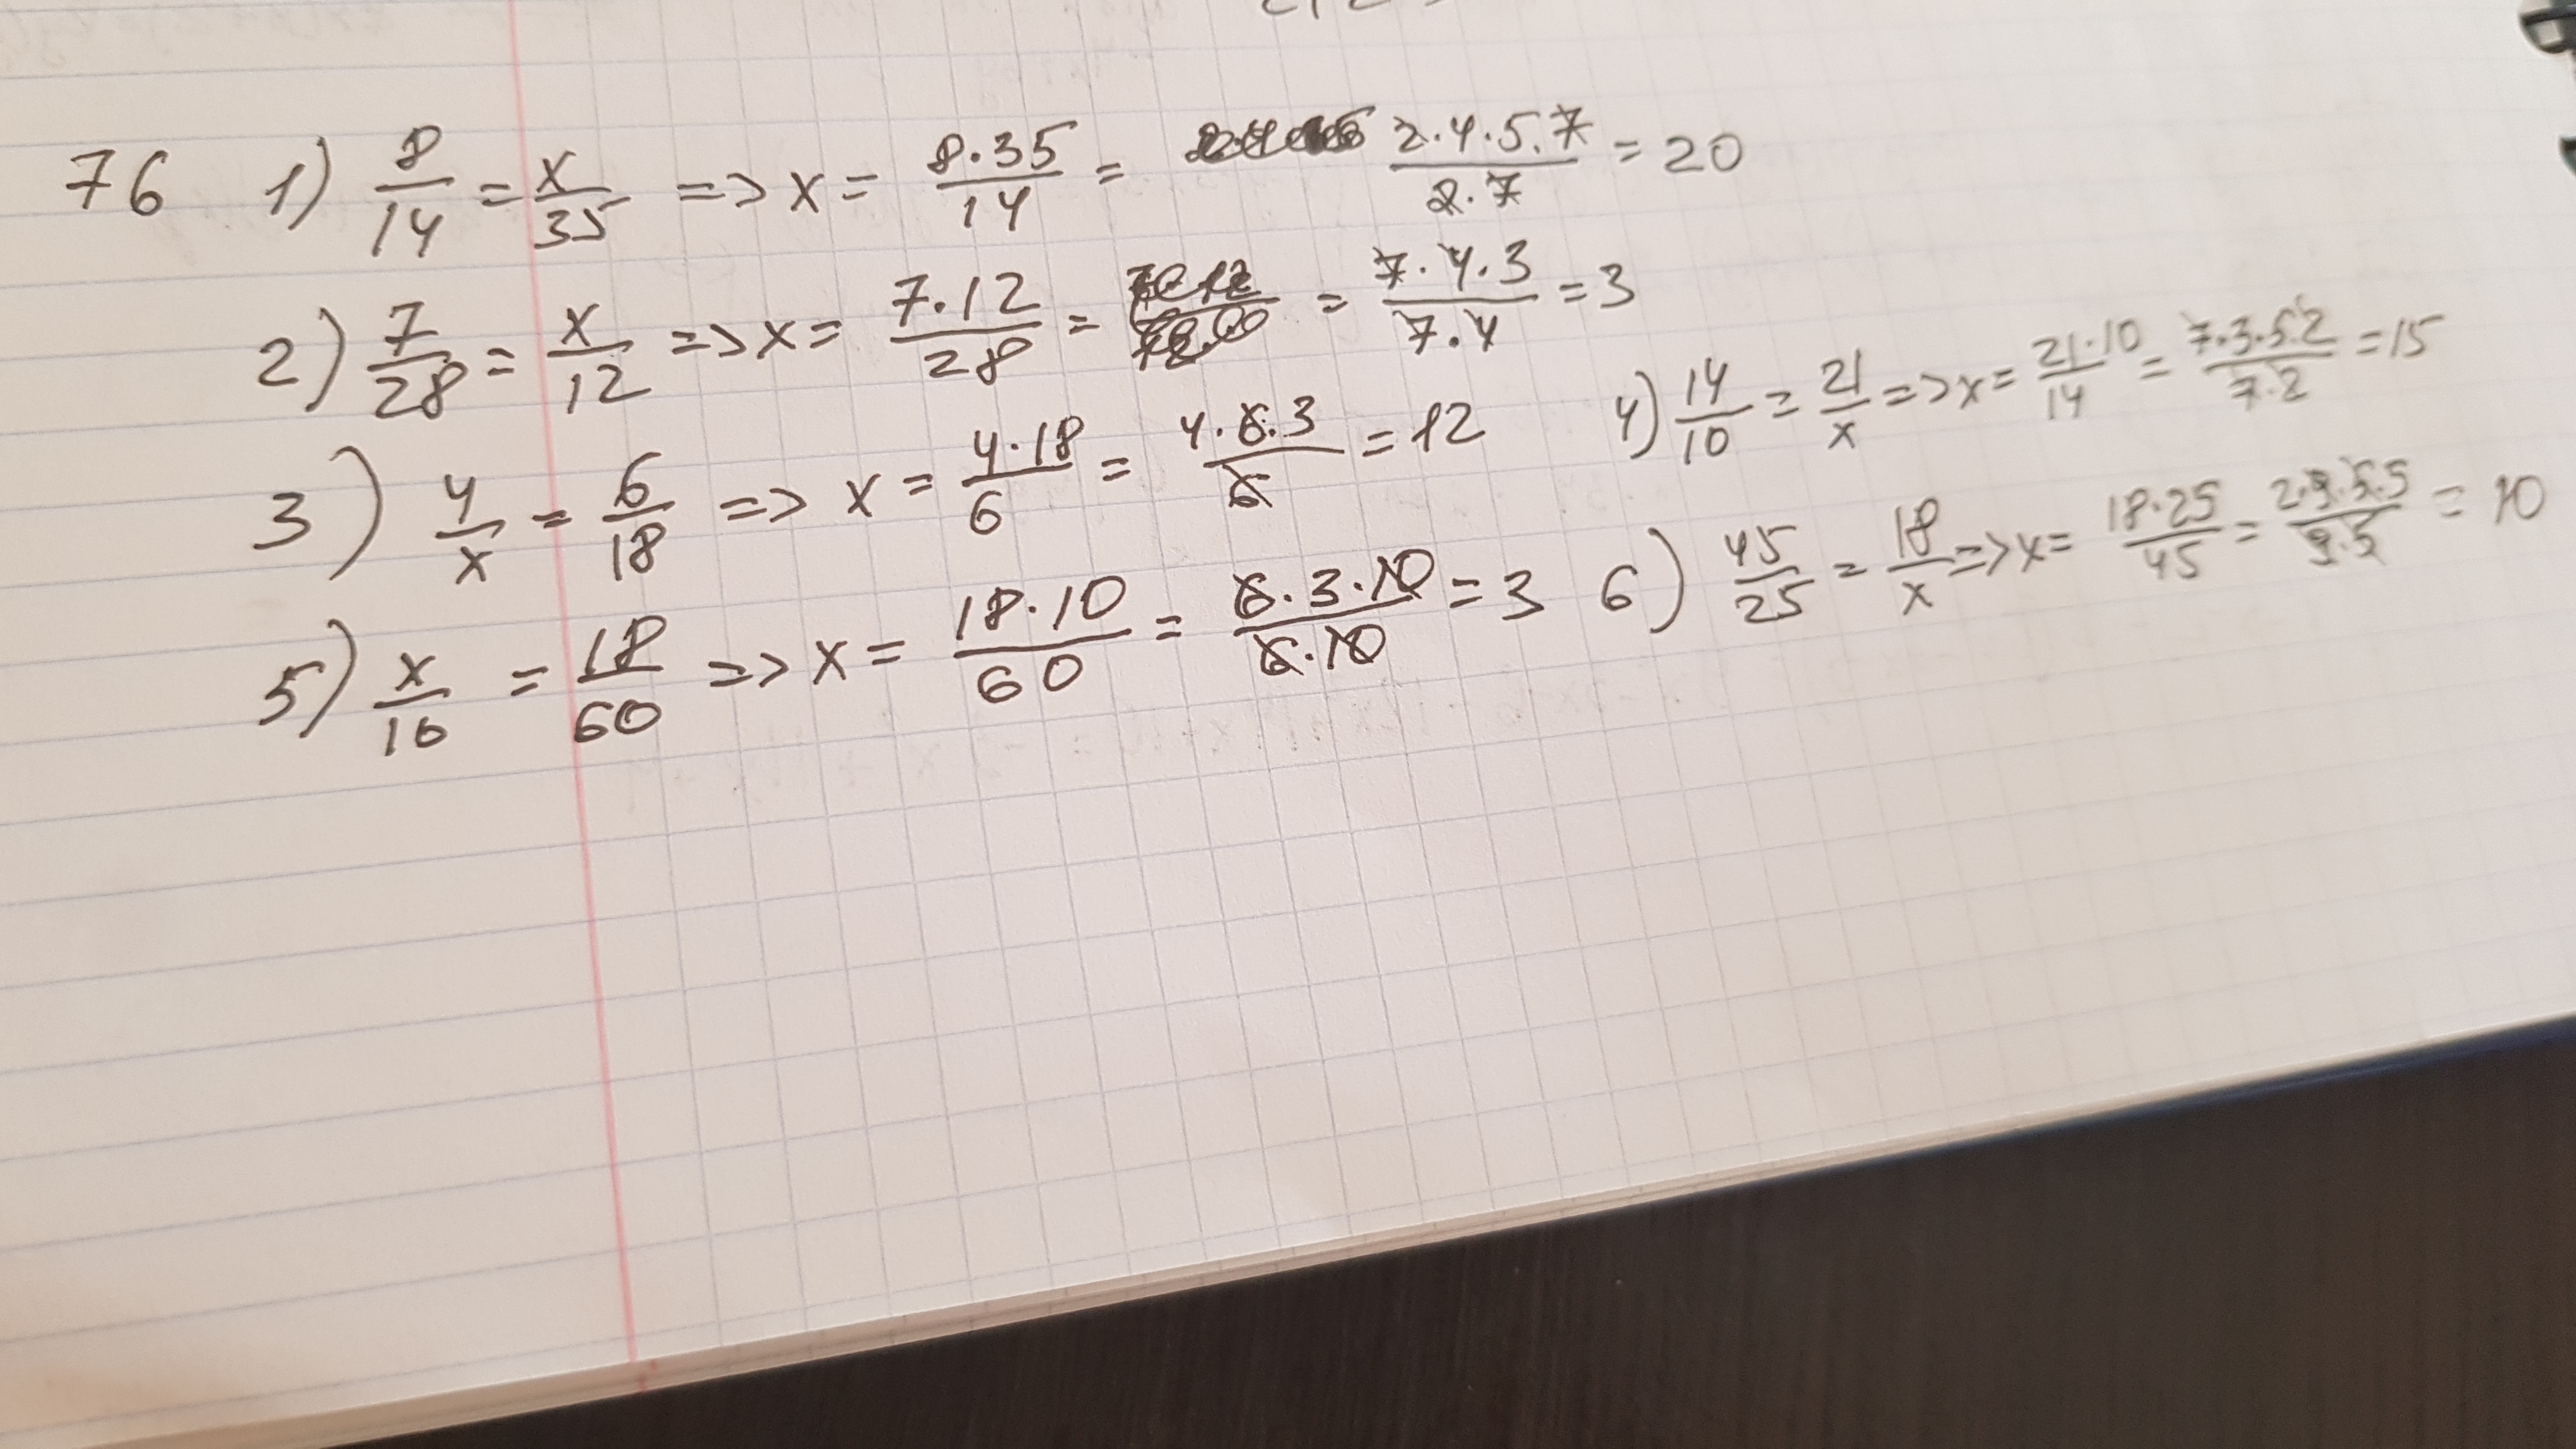 76 1) 8/14 = x/35 => x = 8·35/14 = 2·4·5·7/2·7 = 20
2) 7/28 = x/12 => x = 7·12/28 = = 7·4·3/7·4 = 3
3) 4/x = 6/18 => x = 4·18/6 = 4·6·3/6 = 12
4) 14/10 = 21/x => x = 21·10/14 = 7·3·5·2/7·2 = 15
5) x/10 = 18/60 => x = 18·10/60 = 6·3·10/6·10 = 3
6) 45/25 = 18/x => x = 18·25/45 = 2·9·5·5/9·5 = 10